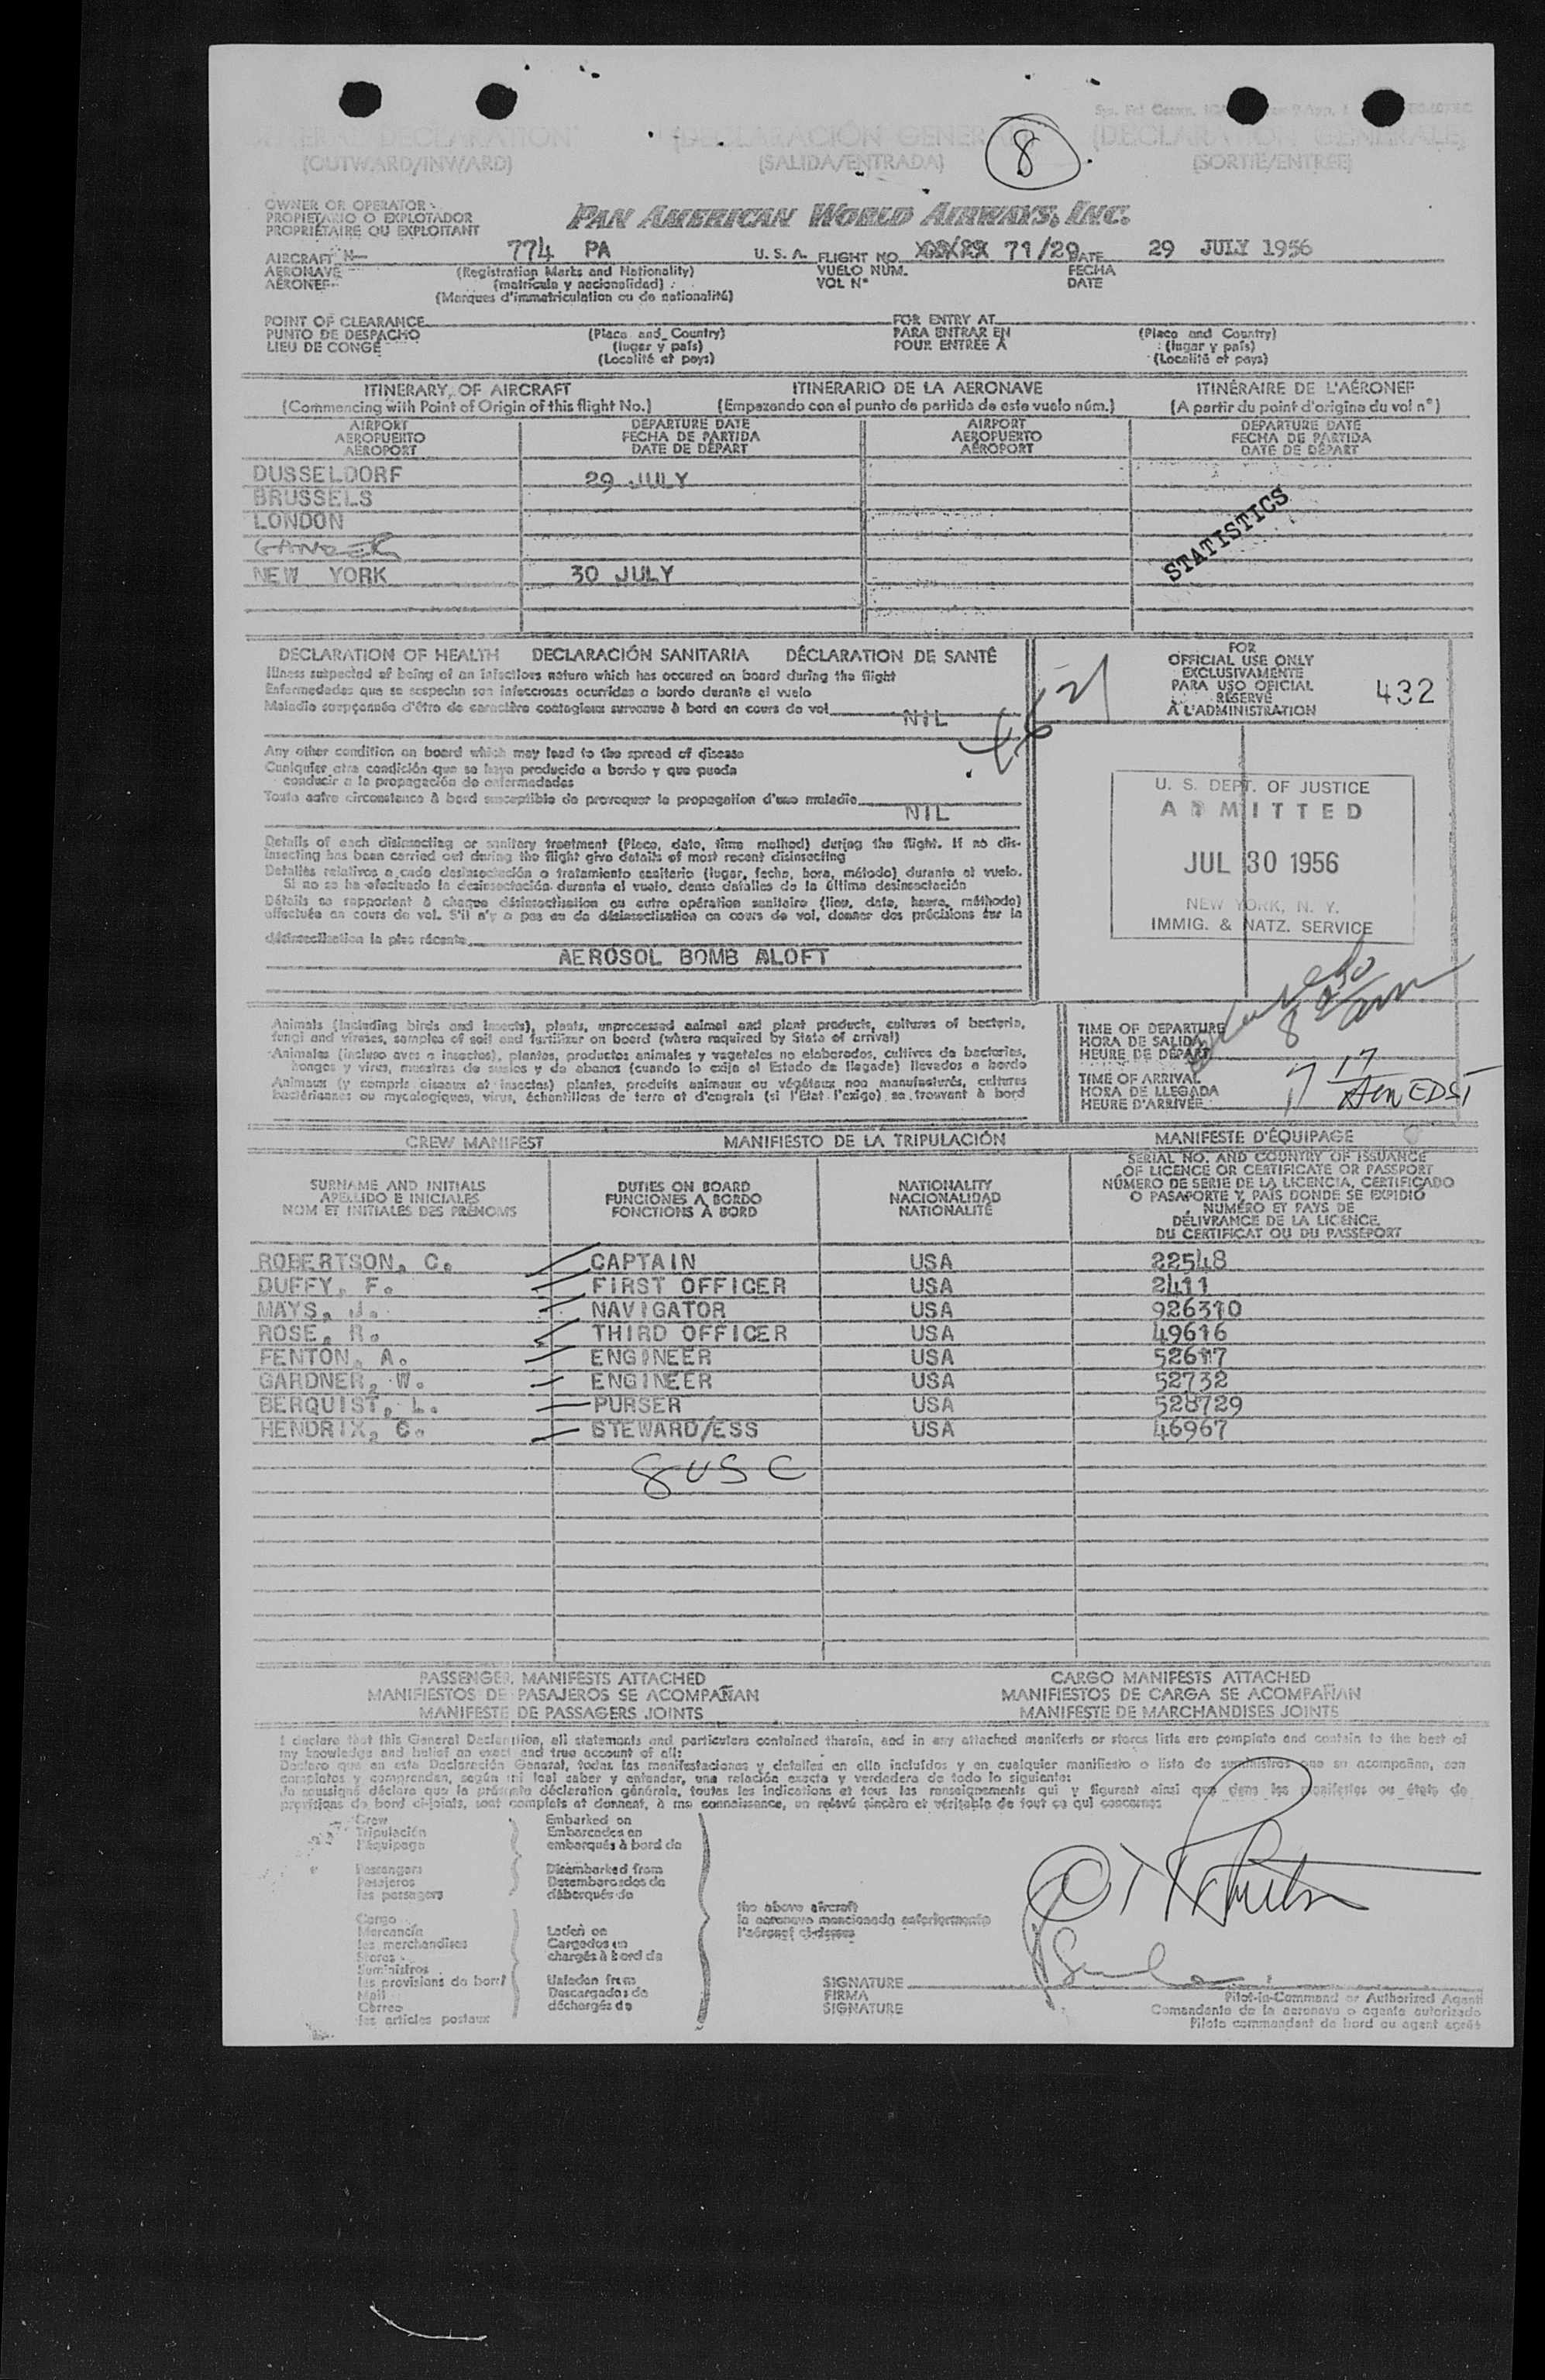 (DECLARACIÓN GENERAL)
(OUTWARD/INWARD) (SALIDA/ENTRADA) (SORTIE/ENTRÉE)
8
OWNER OR OPERATOR
PROPIETARIO O EXPLOTADOR
PROPRIÉTAIRE OU EXPLOITANT
PAN AMERICAN WORLD AIRWAYS, INC.
AIRCRAFT N— 774 PA U. S. A. FLIGHT NO. 71/29 DATE 29 JULY 1956
AERONAVE (Registration Marks and Nationality) VUELO NÚM. FECHA
AÉRONEF (matrícula y nacionalidad) VOL N° DATE
(Marques d'immatriculation ou de nationalité)
POINT OF CLEARANCE FOR ENTRY AT
PUNTO DE DESPACHO (Place and Country) PARA ENTRAR EN (Place and Country)
LIEU DE CONGÉ (lugar y país) POUR ENTRÉE À (lugar y país)
(Localité et pays) (Localité et pays)
ITINERARY OF AIRCRAFT ITINERARIO DE LA AERONAVE ITINÉRAIRE DE L'AÉRONEF
(Commencing with Point of Origin of this flight No.) (Empezando con el punto de partida de este vuelo núm.) (A partir du point d'origine du vol n°)
AIRPORT DEPARTURE DATE AIRPORT DEPARTURE DATE
AEROPUERTO FECHA DE PARTIDA AEROPUERTO FECHA DE PARTIDA
AÉROPORT DATE DE DÉPART AÉROPORT DATE DE DÉPART
DUSSELDORF 29 JULY
BRUSSELS
LONDON
GANDER
NEW YORK 30 JULY
STATISTICS
DECLARATION OF HEALTH DECLARACIÓN SANITARIA DÉCLARATION DE SANTÉ
Illness suspected of being of an infectious nature which has occured on board during the flight
Enfermedades que se sospecha son infecciosas ocurridas a bordo durante el vuelo
Maladie soupçonnée d'être de caractère contagieux survenue à bord en cours de vol NIL
Any other condition on board which may lead to the spread of disease
Cualquier otra condición que se haya producido a bordo y que pueda
conducir a la propagación de enfermedades
Toute autre circonstance à bord susceptible de provoquer la propagation d'une maladie
NIL
Details of each disinsecting or sanitary treatment (Place, date, time method) during the flight. If no dis-
insecting has been carried out during the flight give details of most recent disinsecting
Detalles relativos a cada desinsectación o tratamiento sanitario (lugar, fecha, hora, método) durante el vuelo.
Si no se ha efectuado la desinsectación durante el vuelo, dense detalles de la última desinsectación
Détails se rapportent à chaque désinsectisation ou autre opération sanitaire (lieu, date, heure, méthode)
effectuée en cours de vol. S'il n'y a pas eu de désinsectisation en cours de vol, donner des précisions sur la
désinsectisation la plus récente
AEROSOL BOMB ALOFT
FOR
OFFICIAL USE ONLY
EXCLUSIVAMENTE
PARA USO OFICIAL 432
RÉSERVÉ
À L'ADMINISTRATION
U. S. DEPT. OF JUSTICE
ADMITTED
JUL 30 1956
NEW YORK, N. Y.
IMMIG. & NATZ. SERVICE
Animals (including birds and insects), plants, unprocessed animal and plant products, cultures of bacteria,
fungi and viruses, samples of soil and fertilizer on board (where required by State of arrival)
Animales (incluso aves e insectos), plantas, productos animales y vegetales no elaborados, cultivos de bacterias,
hongos y virus, muestras de suelos y de abonos (cuando lo exija el Estado de llegada) llevados a bordo
Animaux (y compris oiseaux et insectes) plantes, produits animaux ou végétaux non manufacturés, cultures
bactériennes ou mycologiques, virus, échantillons de terre et d'engrais (si l'Etat l'exige) se trouvant à bord
TIME OF DEPARTURE
HORA DE SALIDA
HEURE DE DÉPART
TIME OF ARRIVAL
HORA DE LLEGADA
HEURE D'ARRIVÉE 7 17 EDST
CREW MANIFEST MANIFIESTO DE LA TRIPULACIÓN MANIFESTE D'ÉQUIPAGE
SURNAME AND INITIALS DUTIES ON BOARD NATIONALITY SERIAL NO. AND COUNTRY OF ISSUANCE
APELLIDO E INICIALES FUNCIONES A BORDO NACIONALIDAD OF LICENCE OR CERTIFICATE OR PASSPORT
NOM ET INITIALES DES PRÉNOMS FONCTIONS À BORD NATIONALITÉ NÚMERO DE SERIE DE LA LICENCIA, CERTIFICADO
O PASAPORTE Y PAÍS DONDE SE EXPIDIÓ
NUMÉRO ET PAYS DE
DÉLIVRANCE DE LA LICENCE
DU CERTIFICAT OU DU PASSEPORT
ROBERTSON, C. CAPTAIN USA 22548
DUFFY, F. FIRST OFFICER USA 2411
MAYS, J. NAVIGATOR USA 926310
ROSE, R. THIRD OFFICER USA 49616
FENTON, A. ENGINEER USA 52617
GARDNER, W. ENGINEER USA 52732
BERQUIST, L. PURSER USA 528729
HENDRIX, C. STEWARD/ESS USA 46967
8 USC
PASSENGER MANIFESTS ATTACHED CARGO MANIFESTS ATTACHED
MANIFIESTOS DE PASAJEROS SE ACOMPAÑAN MANIFIESTOS DE CARGA SE ACOMPAÑAN
MANIFESTE DE PASSAGERS JOINTS MANIFESTE DE MARCHANDISES JOINTS
I declare that this General Declaration, all statements and particulars contained therein, and in any attached manifests or stores lists are complete and contain to the best of
my knowledge and belief an exact and true account of all:
Declaro que en esta Declaración General, todas las manifestaciones y detalles en ella incluídos y en cualquier manifiesto o lista de suministros que se acompañe, son
completos y comprenden, según mi leal saber y entender, una relación exacta y verdadera de todo lo siguiente:
Je soussigné déclare que la présente déclaration générale, toutes les indications et tous les renseignements qui y figurent ainsi que dans les manifestes ou états de
provisions de bord ci-joints, sont complets et donnent, à ma connaissance, un relevé sincère et véritable de tout ce qui concerne:
Crew Embarked on
Tripulación Embarcados en
l'Équipage embarqués à bord de
Passengers Disembarked from
Pasajeros Desembarcados de
les passagers débarqués de
Cargo
Mercancía Laden on
les marchandises Cargados en
Stores chargés à bord de
Suministros
les provisions de bord Unladen from
Mail Descargados de
Correo déchargés de
les articles postaux
the above aircraft
la aeronave mencionada anteriormente
l'aéronef ci-dessus
SIGNATURE
FIRMA
SIGNATURE
Pilot-in-Command or Authorized Agent
Comandante de la aeronave o agente autorizado
Pilote commandant de bord ou agent agréé